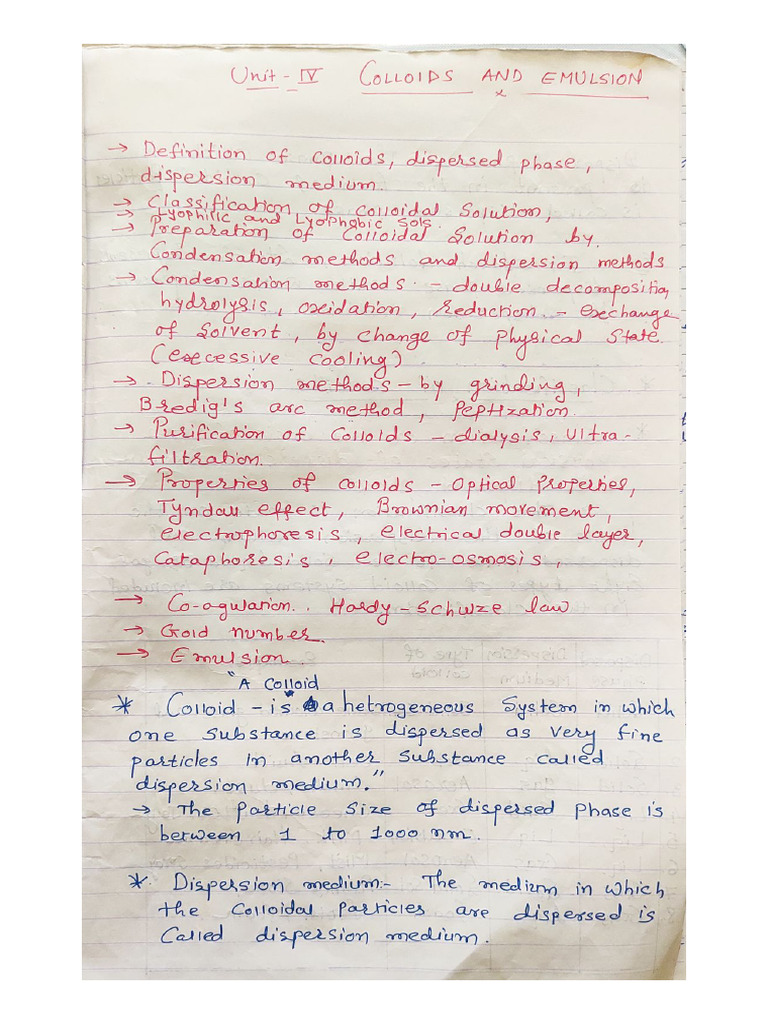 Unit - IV COLLOIDS AND EMULSION
→ Definition of colloids, dispersed phase,
dispersion medium.
→ Classification of colloidal Solution,
→ Lyophilic and Lyophobic sols.
→ Preparation of Colloidal Solution by
Condensation methods and dispersion methods
→ Condensation methods - double decomposition,
hydrolysis, oxidation, reduction - exchange
of solvent, by change of physical state.
(excessive cooling)
→ Dispersion methods - by grinding,
Bredig's arc method, Peptization.
→ Purification of Colloids - dialysis, Ultra-
filtration.
→ Properties of colloids - Optical Properties,
Tyndall effect, Brownian movement,
electrophoresis, electrical double layer,
Cataphoresis, electro-osmosis,
→ Co-agulation. Hardy-Schulze law
→ Gold number.
→ Emulsion.
"A Colloid
* Colloid - is a hetrogeneous System in which
one Substance is dispersed as very fine
particles in another substance called
dispersion medium."
→ The Particle Size of dispersed Phase is
between 1 to 1000 nm.
* Dispersion medium:- The medium in which
the Colloidal Particles are dispersed is
Called dispersion medium.